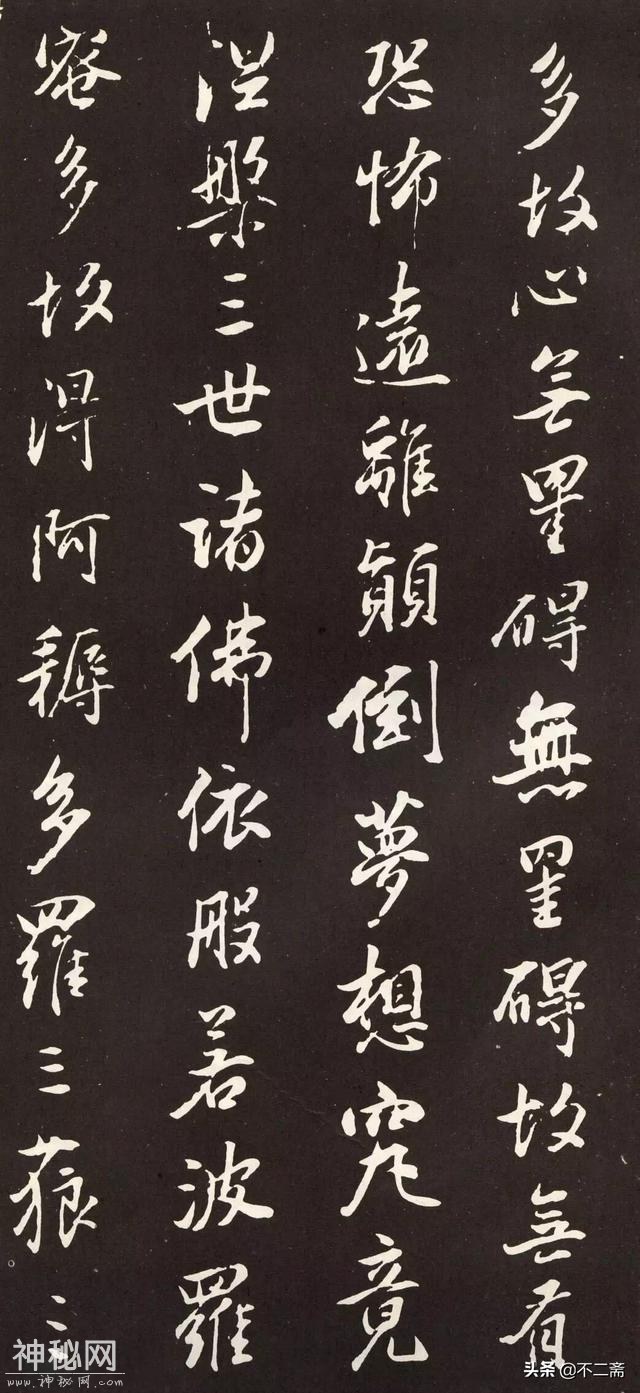 多故心無罣碍無罣碍故無有
恐怖遠離顛倒夢想究竟
涅槃三世諸佛依般若波羅
蜜多故得阿耨多羅三藐三
神秘网
www.神秘网.com
头条 @不二斋